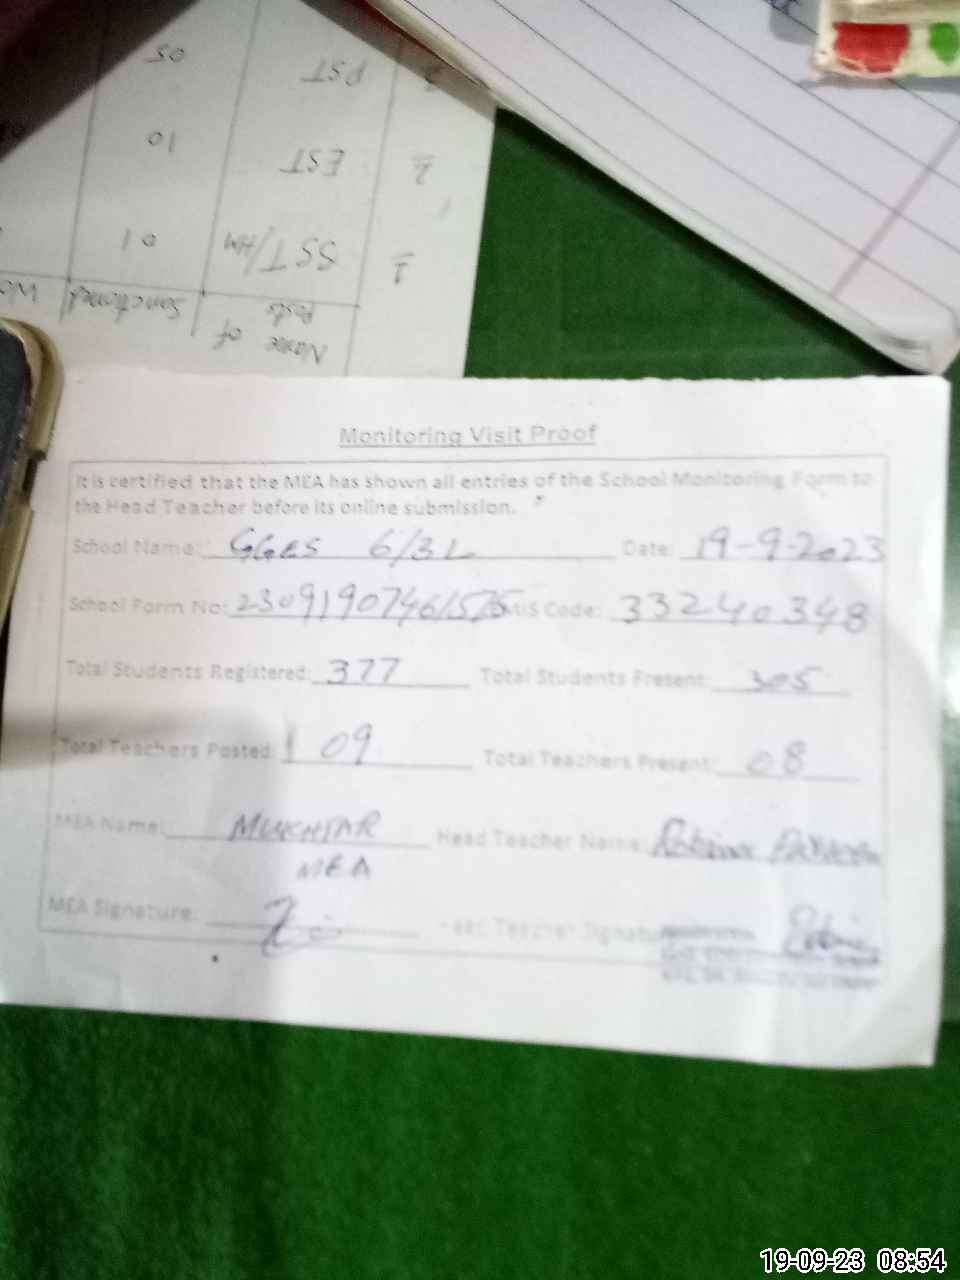 05
PST
10
EST
2
01
SST/HM
1
Sanctioned
Name of
Posts
Monitoring Visit Proof
It is certified that the MEA has shown all entries of the School Monitoring Form to
the Head Teacher before its online submission.
School Name: GGES 6/3L Date: 19-9-2023
School Form No: EMIS Code: 33240348
Total Students Registered: 377 Total Students Present: 305
Total Teachers Posted: 09 Total Teachers Present: 08
MEA Name: MUKHTAR Head Teacher Name:
MEA
MEA Signature: Head Teacher Signature
19-09-23 08:54